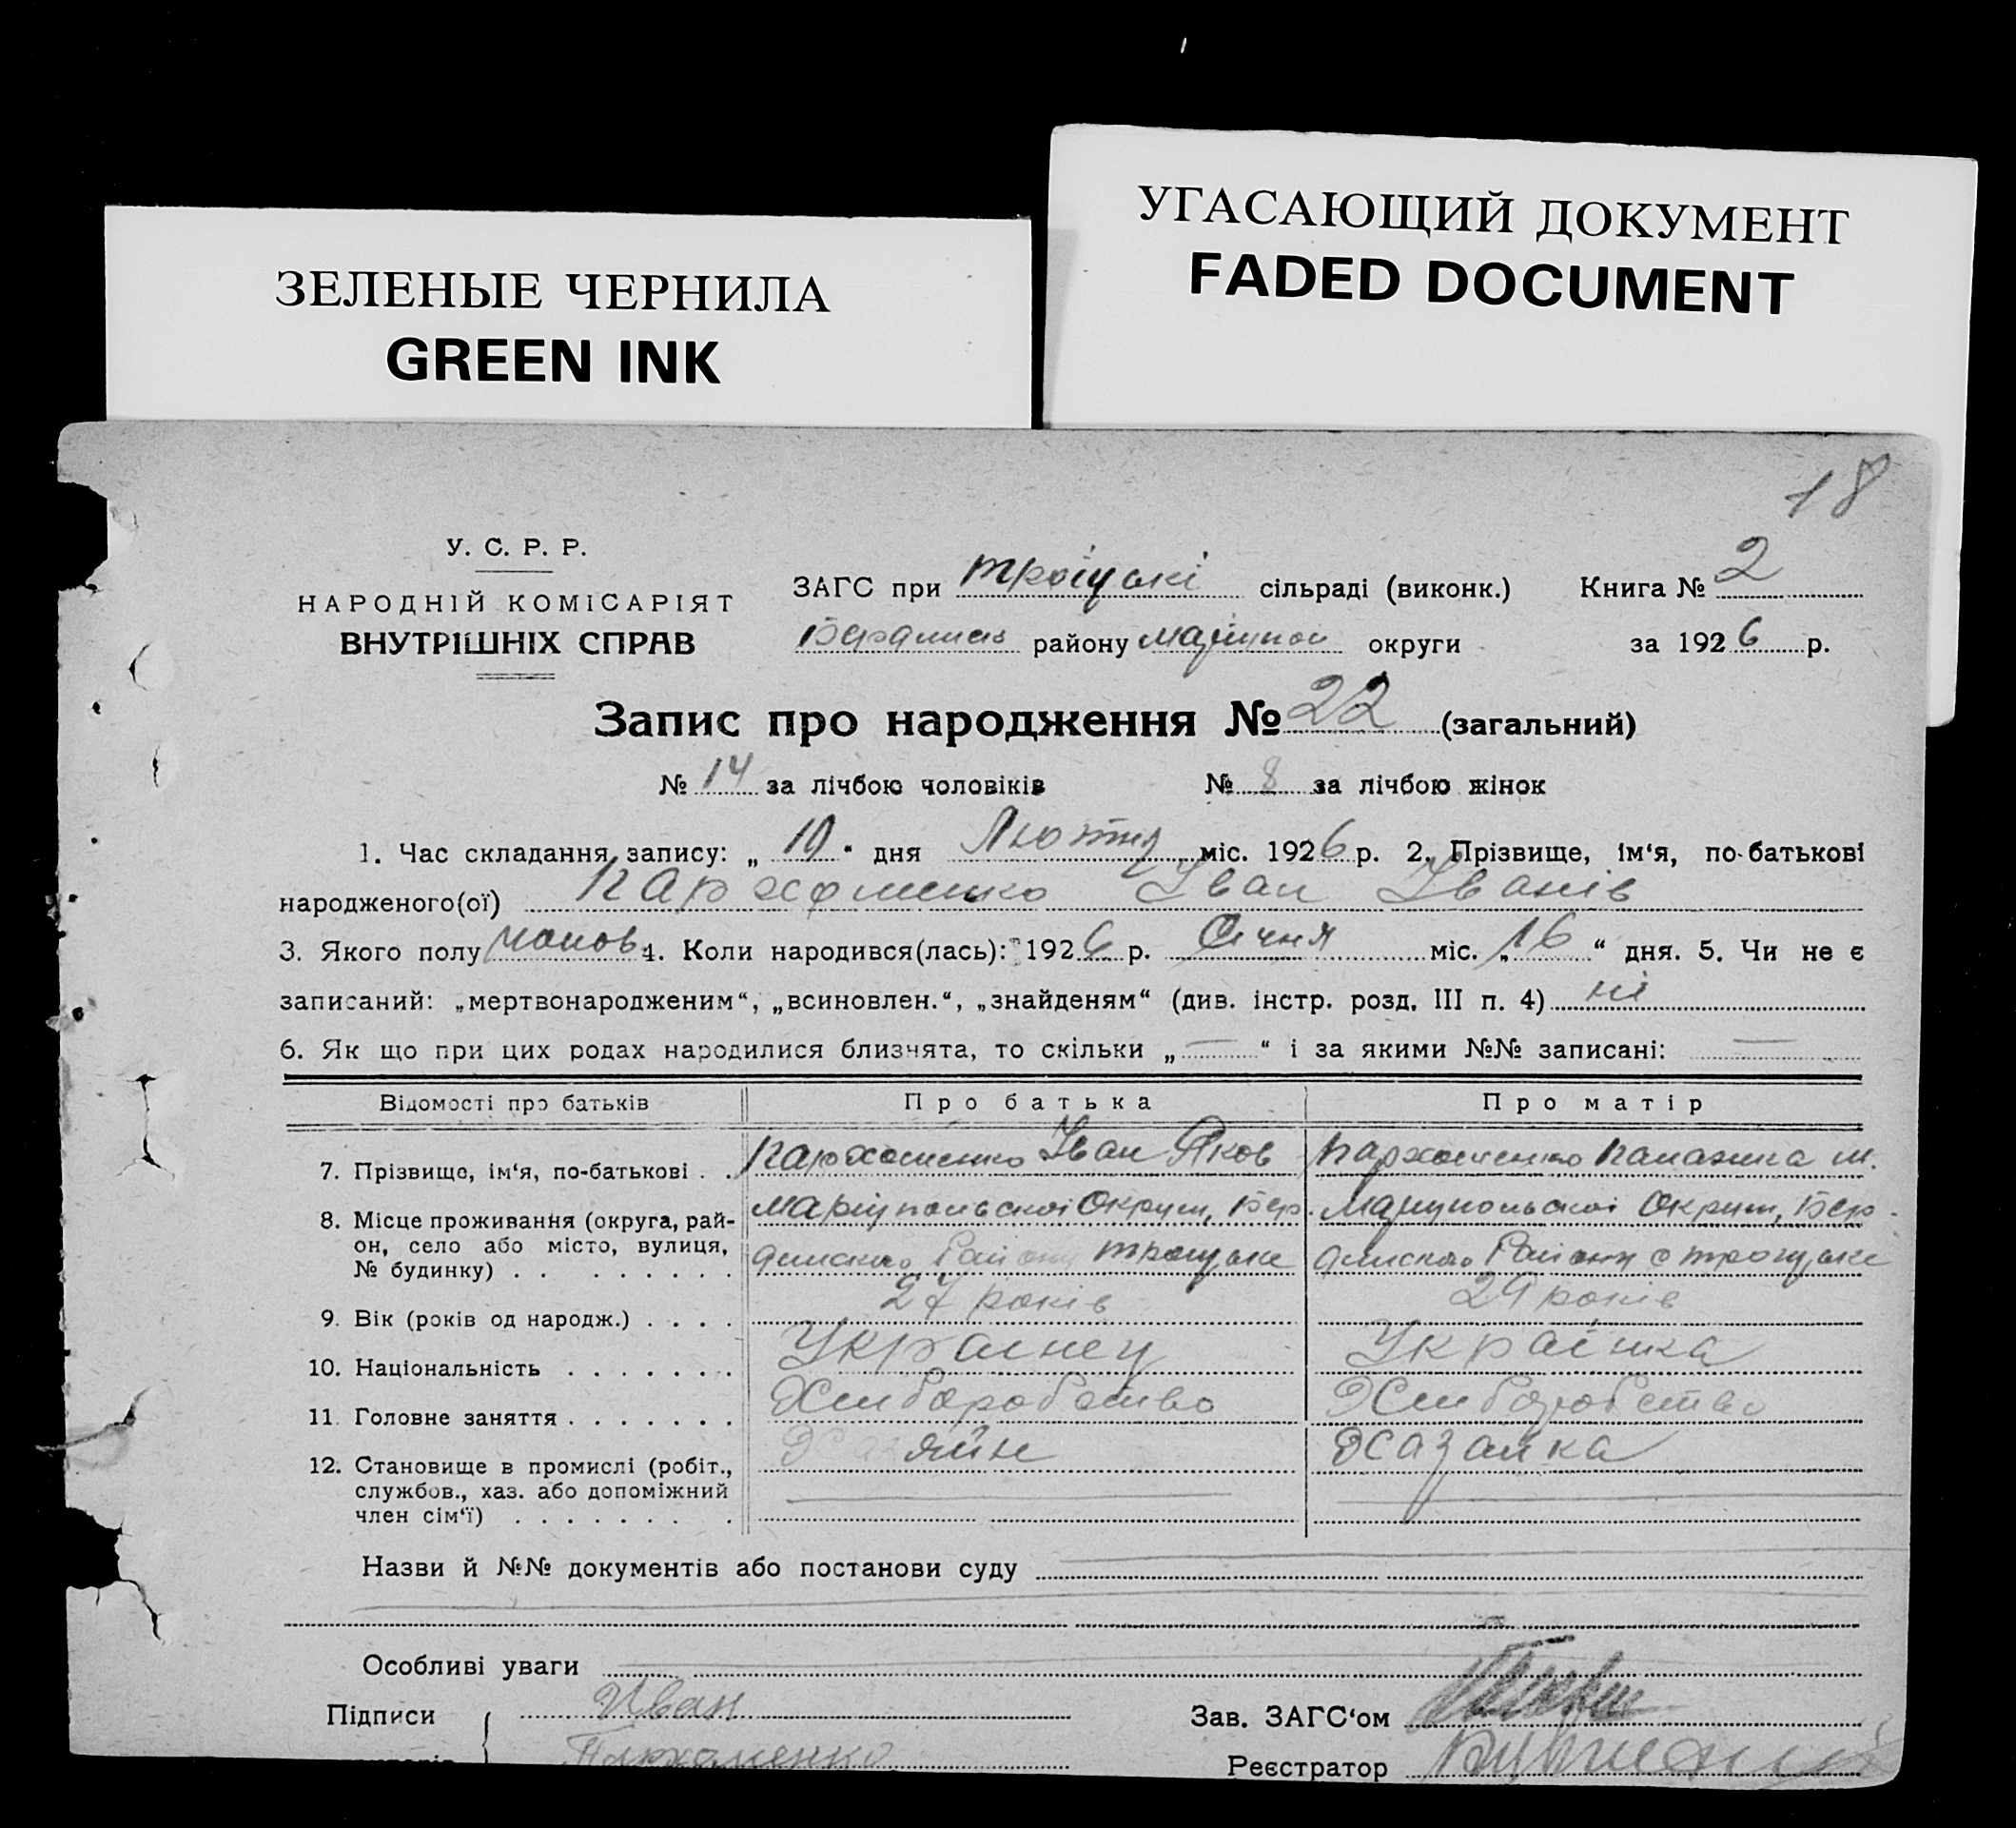 УГАСАЮЩИЙ ДОКУМЕНТ
FADED DOCUMENT
ЗЕЛЕНЫЕ ЧЕРНИЛА
GREEN INK
18
У. С. Р. Р.
НАРОДНІЙ КОМІСАРІЯТ
ВНУТРІШНІХ СПРАВ
ЗАГС при троіцькі сільраді (виконк.) Книга № 2
району маріупол округи за 1926 р.
Запис про народження № 22 (загальний)
№ 14 за лічбою чоловіків № 8 за лічбою жінок
1. Час складання запису: „ 10 “ дня Лютия міс. 1926 р. 2. Прізвище, ім‘я, по-батькові
народженого(ої) Пархоменко Іван Іванів
3. Якого полу чолов 4. Коли народився(лась): 1926 р. Січня міс. „ 16 “ дня. 5. Чи не є
записаний: „мертвонародженим“, „всиновлен.“, „знайденям“ (див. інстр. розд. III п. 4) ні
6. Як що при цих родах народилися близнята, то скільки „ — “ і за якими №№ записані: —
Відомості про батьків Про батька Про матір
7. Прізвище, ім‘я, по-батькові . . Пархоменко Іван Яков Пархоменко
8. Місце проживання (округа, рай- Маріупольскоі Округи, Бер Маріупольскоі Округи, Бер
он, село або місто, вулиця, Району троіцьке Району с троіцьке
№ будинку) . . . . . . . .
9. Вік (років од народж.) . . . . 27 років 29 років
10. Національність . . . . . . . Украінец Украінка
11. Головне заняття . . . . . . . Хлиборобство Хлиборобство
12. Становище в промислі (робіт., Хазяйн Хазайка
службов., хаз. або допоміжний
член сім‘ї) . . . . . . . .
Назви й №№ документів або постанови суду
Особливі уваги
Підписи Иван Зав. ЗАГС‘ом
Пархаменко Реєстратор